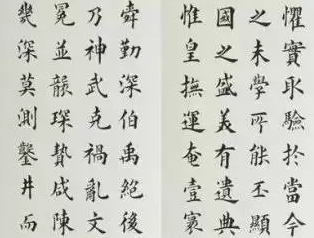 懼實取驗於當今
之末學所能丕顯
國之盛美有遺典
惟皇撫運奄壹寰
舜勤深伯禹絕後
乃神武克禍亂文
冕並襲琛贄咸陳
幾深莫測鑿井而